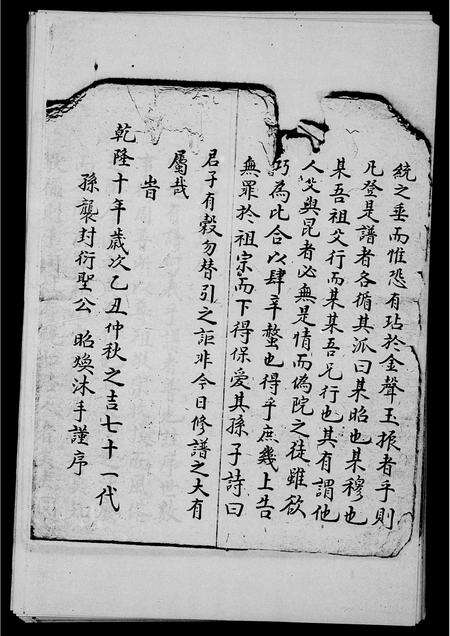 統之垂而惟恐有玷於金聲玉振者乎則
凡登是譜者各循其派曰某昭也某穆也
某吾祖父行而某某吾兄行也其有謂他
人父與昆者必無是情而偽院之徒雖欲
巧為比合以肆辛螫也得乎庶幾上告
無罪於祖宗而下得保愛其孫子詩曰
君子有穀勿替引之詎非今日修譜之大有
屬哉
旹
乾隆十年歲次乙丑仲秋之吉七十一代
孫襲封衍聖公昭煥沐手謹序